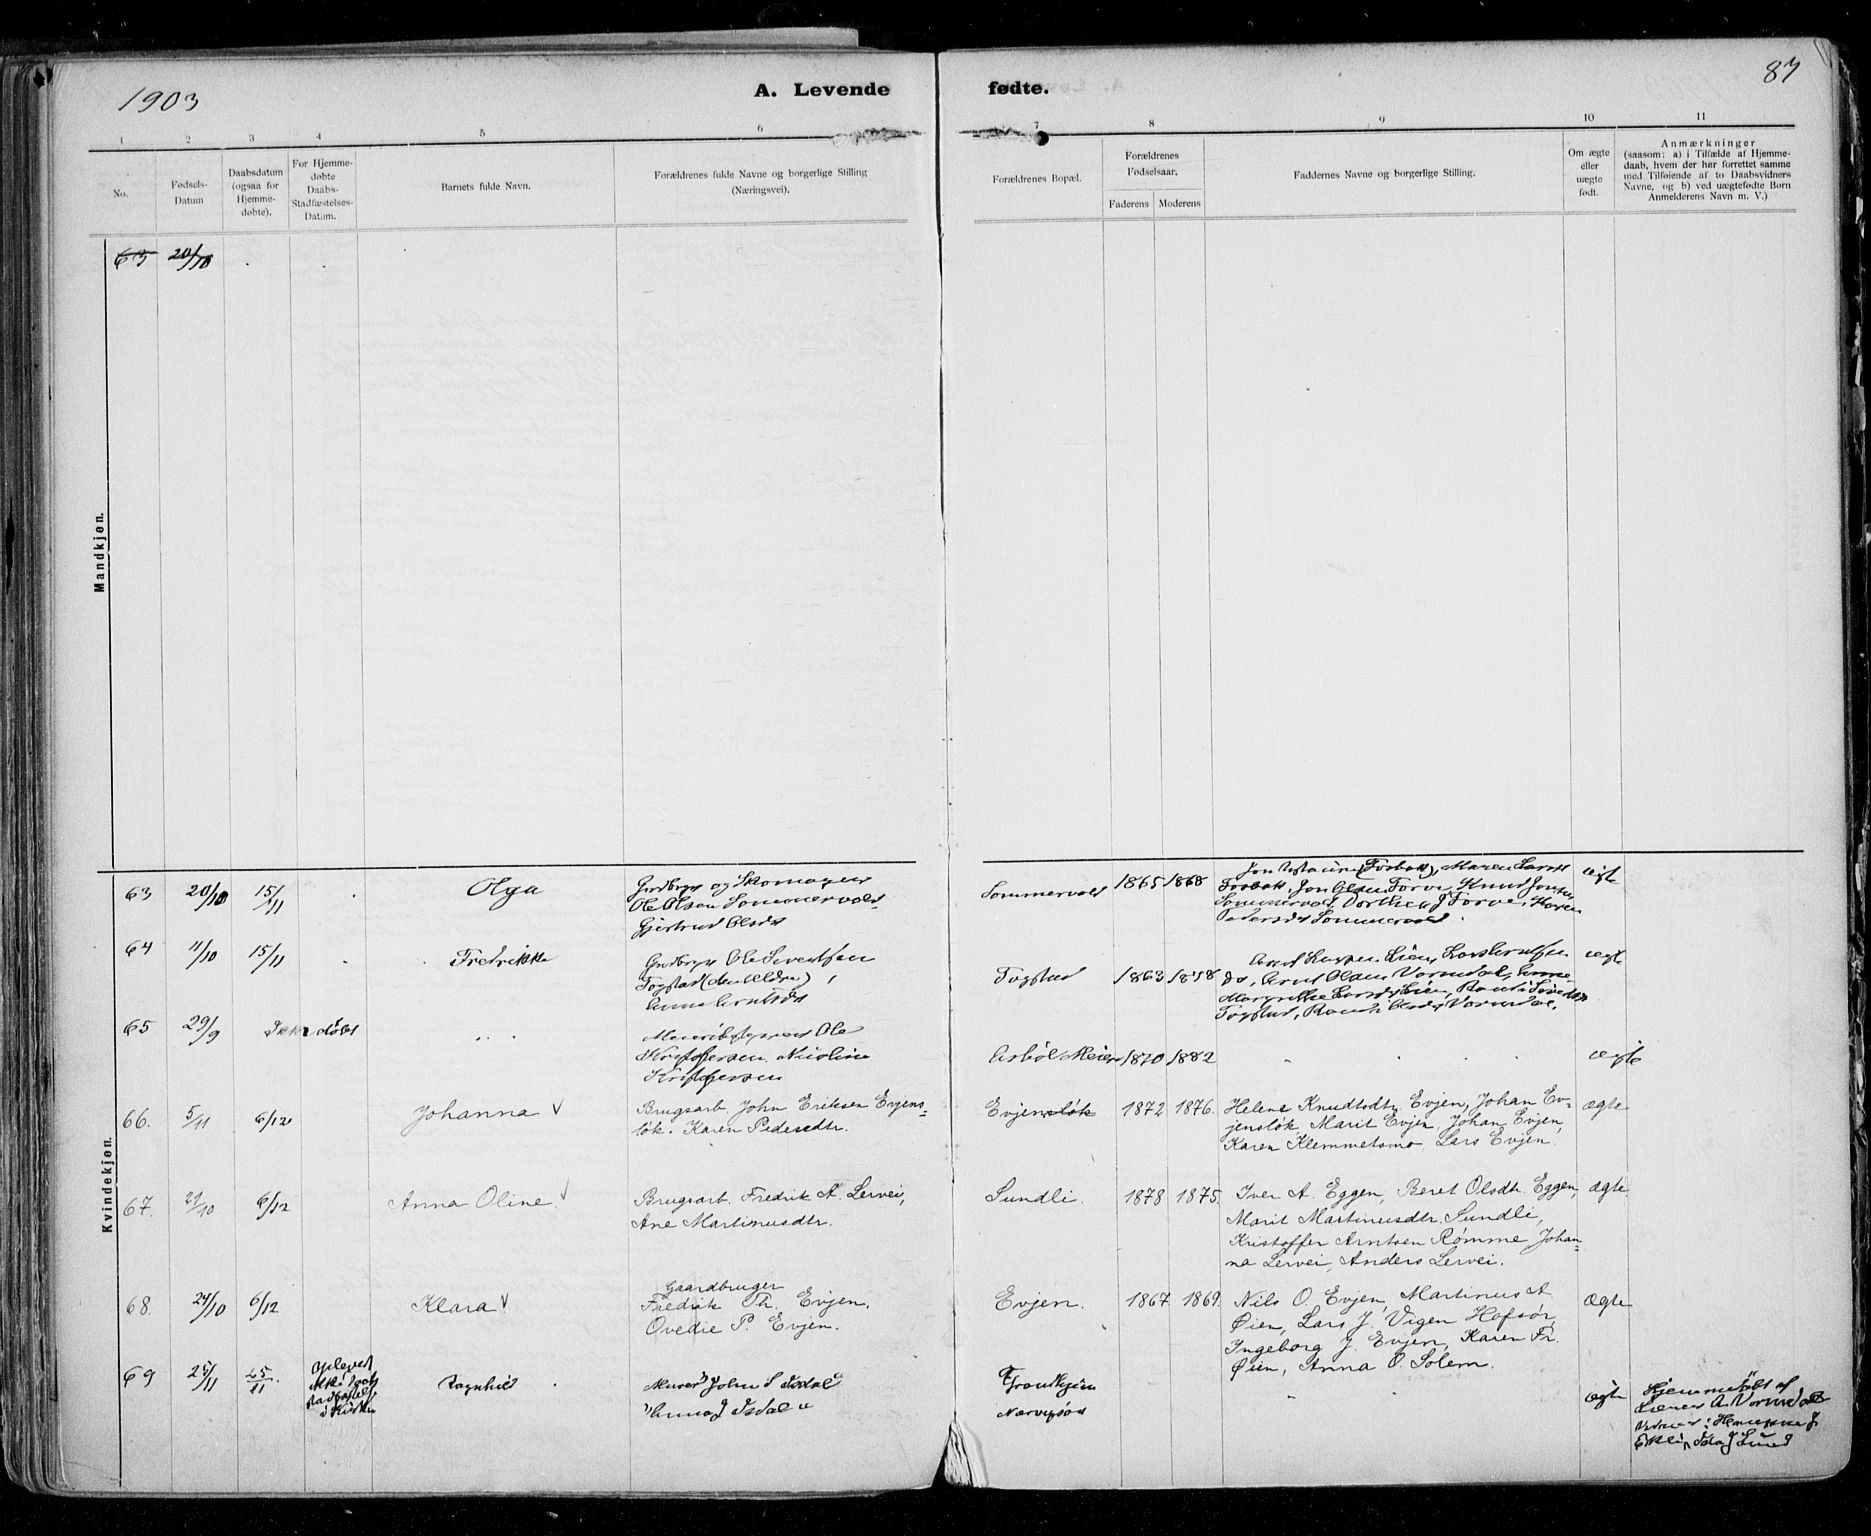 1903
A. Levende fødte.
87
1 2 3 4 5 6 7 8 9 10 11
No.
Fødsels-
Datum
Daabsdatum
(ogsaa for
Hjemme-
døbte).
For Hjemme-
døbte
Daabs-
Stadfæstelses-
Datum.
Barnets fulde Navn.
Forældrenes fulde Navne og borgerlige Stilling
(Næringsvei).
Forældrenes Bopæl.
Forældrenes
Fødselsaar.
Faderens Moderens
Faddernes Navne og borgerlige Stilling.
Om ægte
eller
uægte
født.
Anmærkninger
(saasom: a) i Tilfælde af Hjemme-
daab, hvem der har forrettet samme
med Tilføiende af to Daabsvidners
Navne, og b) ved uægtefødte Børn
Anmelderens Navn m. V.)
Mandkjøn.
63 20/10
Kvindekjøn.
63 20/10 15/11 Olga
Grdbrgr og Skomager
Ole Olsen Sommervold
Gjertrud Olsdt
Sommervold 1865 1868
Maren Larsdt
Jon Olsen Torve, Knud Jonsen
Sommervold, Dorthea J Torve, Karen
Pedersdt Sommervold.
ægte
64 11/10 15/11 Fredrikke
Grdbrgr Ole Sivertsen
Togstad (den Ældre),
Anna Arntsdt
Togstad 1863 1858
Arnt Olsen Vormdal, Anne
Togstad, Randi Olsdt Vormdal.
ægte
65 29/9 Ikke døbt
Meieribestyrer Ole
Kristoffersen, Nicoline
Kristoffersen
Meier 1870 1882 ægte
66. 5/11 6/12 Johanna V
Brugsarb. John Eriksen Evjens-
løk. Karen Pedersdtr.
Evjensløk 1872 1876.
Helene Knudtsdtr Evjen, Johan Ev-
jensløk, Marit Evjen, Johan Evjen,
Karen Klemmetsmo, Lars Evjen.
ægte
67. 21/10 6/12 Anna Oline V
Brugsarb. Fredrik A. Lervei,
Ane Martinusdtr.
Sundli. 1878 1875.
Iver A. Eggen, Beret Olsdtr. Eggen,
Marit Martinusdtr. Sundli,
Kristoffer Arntsen Rømme, Johan-
na Lervei, Anders Lervei.
ægte.
68. 24/10 6/12 Klara V
Gaardbruger
Fredrik Th. Evjen.
Ovedie P. Evjen.
Evjen. 1867 1869.
Nils O. Evjen, Martinus A.
Øien, Lars J. Vigen Hofsør,
Ingeborg J. Evjen, Karen Fr.
Øien, Anna O. Solem.
Ægte
69 25/11 25/11.
Oplevet
ikke Daabs
stadfæstelse
i Kirken
Ragnhild
Murer John S Isdal
Anna J Isdal
Trondhjem
ægte
Hjemmedøbt af
Lærer A Vormdal
Vidner:
Ekli, Ida J Lund